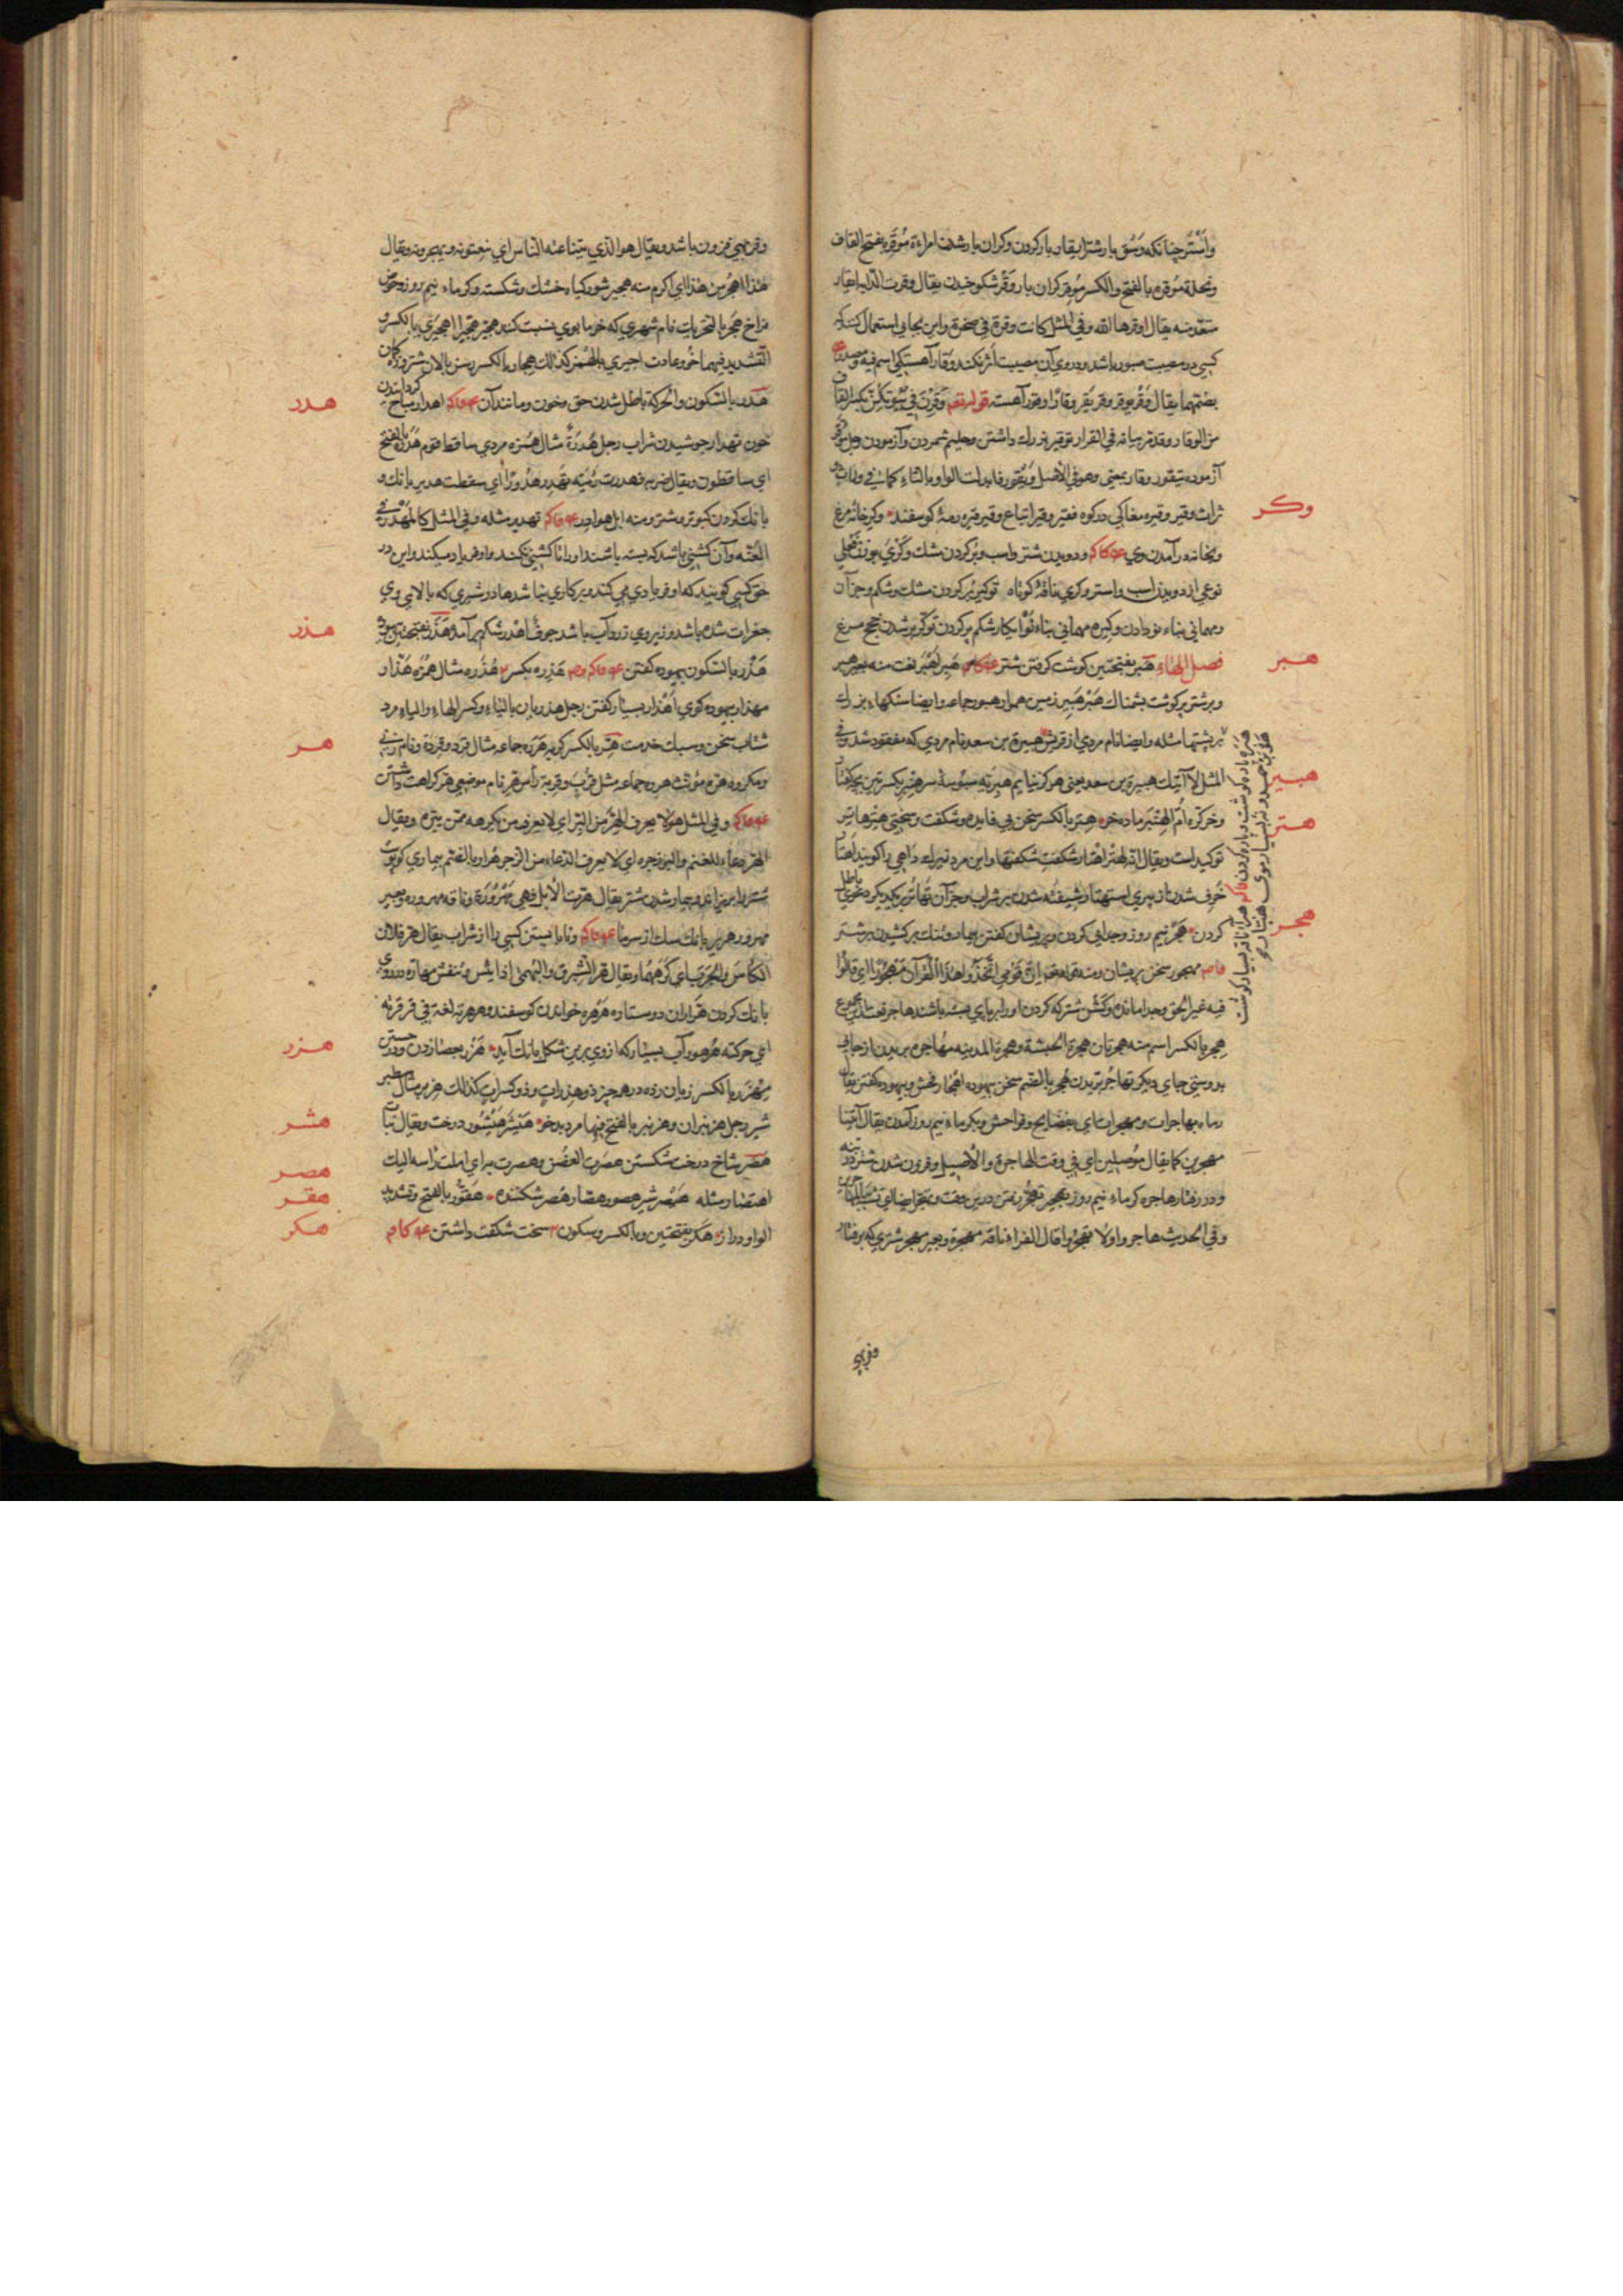 واَسْتُر چنانکه وَسُق بار شتر ایقار بار کردن وکران بار شدن امراءة مُوقَرة بفتح القاف
ونخلة مُوقره بالفتح والکسر مُوقِر کران بار وَقْر شکوخیدن یقال وقرت الدابة ایقار
منه یقال اوقرها الله وفی المثل کانت وقرة فی صخرة واین بجایی استعمال کنند که
کسی در مصیبت صبور باشد ودروی آن مصیبت اثر نکند وقار آهستکی اسم فیه
بضمهما یقال وَقُر یوقر وقر یقر وقارًا وقور آهسته قوله تعم وَقَرْنَ فی بُیُوتِکُنّ بکسر القاف
من الوقار وقد مر بیانه فی القرار توقیر بزرك داشتن وحلیم شمردن وآزمودن رجل موقر
آزموده تیقور وقار بمعنی وهو فی الاصل وَیْقور فابدلت الواو بالتاء کما فی
تراث وقیر وقیره مغاکی در کوه فقیر وقیر اتباع وقیر قره رمهٔ کوسفند وکر خانهٔ مرغ
وبخانه درآمدن وی ودویدن شتر واسب وپر کردن مشك وَکَرَی بوزن فعلی
نوعی از دویدن اسب واستر وکری ناقهٔ کوتاه توکیر پر کردن مشك وشکم وجز آن
ومهمانی بناء نو دادن وکیره مهمانی بناء نو شکم پر کردن توکر پر شدن مرغ
فصل الهاء هبر بفتحتین کوشت کرفتن شتر هَبِر اَهْبَر نعت منه بعیر هبر
وبر شتر پر کوشت پشمناك هَبْر هَبیر زمین هموار هبور جماعه وایضا سنکهاء بزرك
بر پشتها مثله وایضا نام مردی از قریش هبیرة بن سعد نام مردی که مفقود شد وفی
المثل لا آتیك هبیرة بن سعد یعنی هرکز نیایم هبریه سبوسهٔ سر هنبر بکسرتین بچه کفتار
وخر کره اُمّ الهنبر ماده خر هتر بالکسر سخن بی فایده وشکفت وسختی هتر هاتر
توکید است ویقال انه لهتر اهتار شکفت شکفتها واین مرد زیرك داهی را کویند اهتار
خَرِف شدن از پیری استهتار شیفته شدن بر شراب وجز آن تهاتر بر یکدیکر دعوی باطل
کردن هَجْر نیم روز وجدایی کردن وپریشان کفتن بیمار وتنك برکشیدن بر شتر
مهجور سخن پریشان ومنه قوله تعم اِنَّ قَوْمِی اتَّخَذُوا هذا الْقُرْآنَ مَهْجُورًا ای قالوا
فیه غیر الحق وجدا مانده وکُشن شتر که کردن اورا بر پای بسته باشند هاجر نعت
هجر بالکسر اسم منه هجرتان هجرة الحبشة وهجرة المدینه مهاجره بریدن از جایی
بدوستی جای دیکر تهاجر بریدن هُجر بالضم سخن بیهوده اهجار فحش وبیهوده کفتن یقال
رماه بهاجرات ومهجرات ای بفضایح وفواحش وبکرماء نیم روز آمدن یقال آتینا
مهجرین کما یقال مؤصلین ای فی وقت الهاجرة والاصیل وفزون شدن شتر
ودر رفتار هاجره کرماء نیم روز تهجیر تهجر رفتن درین وقت وتهجر ایضا ای
وفی الحدیث هاجروا ولا تهجروا قال الفراء ناقة مهجرة وبعیر مهجر شتری که برفتار
وکر
هبر
هبیر
هتر
هجر
وفربهی فزون باشد ویقال هو الذی یتناعته الناس ای ینعتونه ویهجرونه ویقال
هذا اهجر من هذا ای اکرم منه هجیر شور کیاه خشك وشکسته وکرماء نیم روز وحوض
فراخ هَجَر بالتحریك نام شهری که خرما بوی نسبت کنند هجیر هجیرا اهجیری بالکسر و
التشدید فیهما خوُ وعادت اجیری بالهمز کذلك هجار بالکسر رسن بالان شتر وزه کمان
هدر بالسکون والحرکة باطل شدن حق وخون ومانند آن اهدار مباح کردانیدن
خون تهدار جوشیدن شراب رجل هُدَرَةٌ مثال هُمَزه مردی ساقط قوم هَدَرة بالفتح
ای ساقطون ویقال ضربه فهدرت رئته تهدر هُدُورًا ای سقطت هدیر بانك
بانك کردن کبوتر وشتر ومنه ابل هوادر تهدیر مثله وفی المثل کالمُهَدِّر فی
العُنّه وآن کشنی باشد که بسته باشند اورا تا کشنی نکند واو فریاد میکند واین در
حق کسی کویند که او فریادی می کند وبر کاری نباشد هادر شیری که بالایی وی
جغرات شده باشد وزیر وی زرداب باشد جوف اهدر شکم برآمده هَذَر بفتحتین بیهوده
هَذْر بالسکون بیهوده کفتن هَذِره بکسر هُذَره مثال هُمَزه هَذّار
مهذار بیهوده کوی اهذار بسیار کفتن رجل هذریان بالیاء وکسر الهاء والیاء مرد
شتاب سخن وسبك خدمت هِرّ بالکسر کربه هِرَرَه جماعه مثال قِرَد وقِرَدَة ونام زنی
ومکروه هره مؤنث هرر جماعه مثل قِرَب وقِربة رأس هر نام موضعی هر کراهت داشتن
وفی المثل هو لا یعرف الهِرّ من البِرّ ای لا یعرف من یکرهه ممّن یبرّه ویقال
الهر دعاء للغنم والبر زجره ای لا یعرف الدعاء من الزجر هُرار بالضم بیماری که پوست
شتر را بریزاند وبیمار شدن شتر یقال هرّت الابل فهی مَهْرُورَة وناقه مهروره وبعیر
مهرور هریر بانك سك از سرما ونابایستن کسی را از شراب یقال هر فلان
الکأسَ والحربَ ای کَرِهَهُما ویقال هر الشبرق والبهمی اذا یبس وتنفش مهاره در روی
بانك کردن هَرّاران دو ستاره هَرْهَره خواندن کوسفند وهرهرته لغة فی فرفرته
ای حرکته هُرهور آب بسیار که از وی برین شکل بانك آید هَزر بعصا زدن
مِهْزَر بالکسر زیان زده در هر چیز ذو هزرات وذو کسرات کذلك هزبر مثال
شیر رجل هزنبران وهزنبر بالفتح فیهما مرد بدخو هَیْشَر هَیْشُور درخت ویقال نبات
هَصر شاخ درخت شکستن هصرت الغصن وهصرت براسه ای املت راسه الیك
اهتصار مثله هَیْصَر شیر هصور هصّار هُصَر شکننده هَقَوَّر بالفتح وتشدید
الواو دراز هَکر بفتحتین وبالکسر وسکون سخت شکفت داشتن
هدر
هذر
هر
هزر
هشر
هصر
هقر
هکر